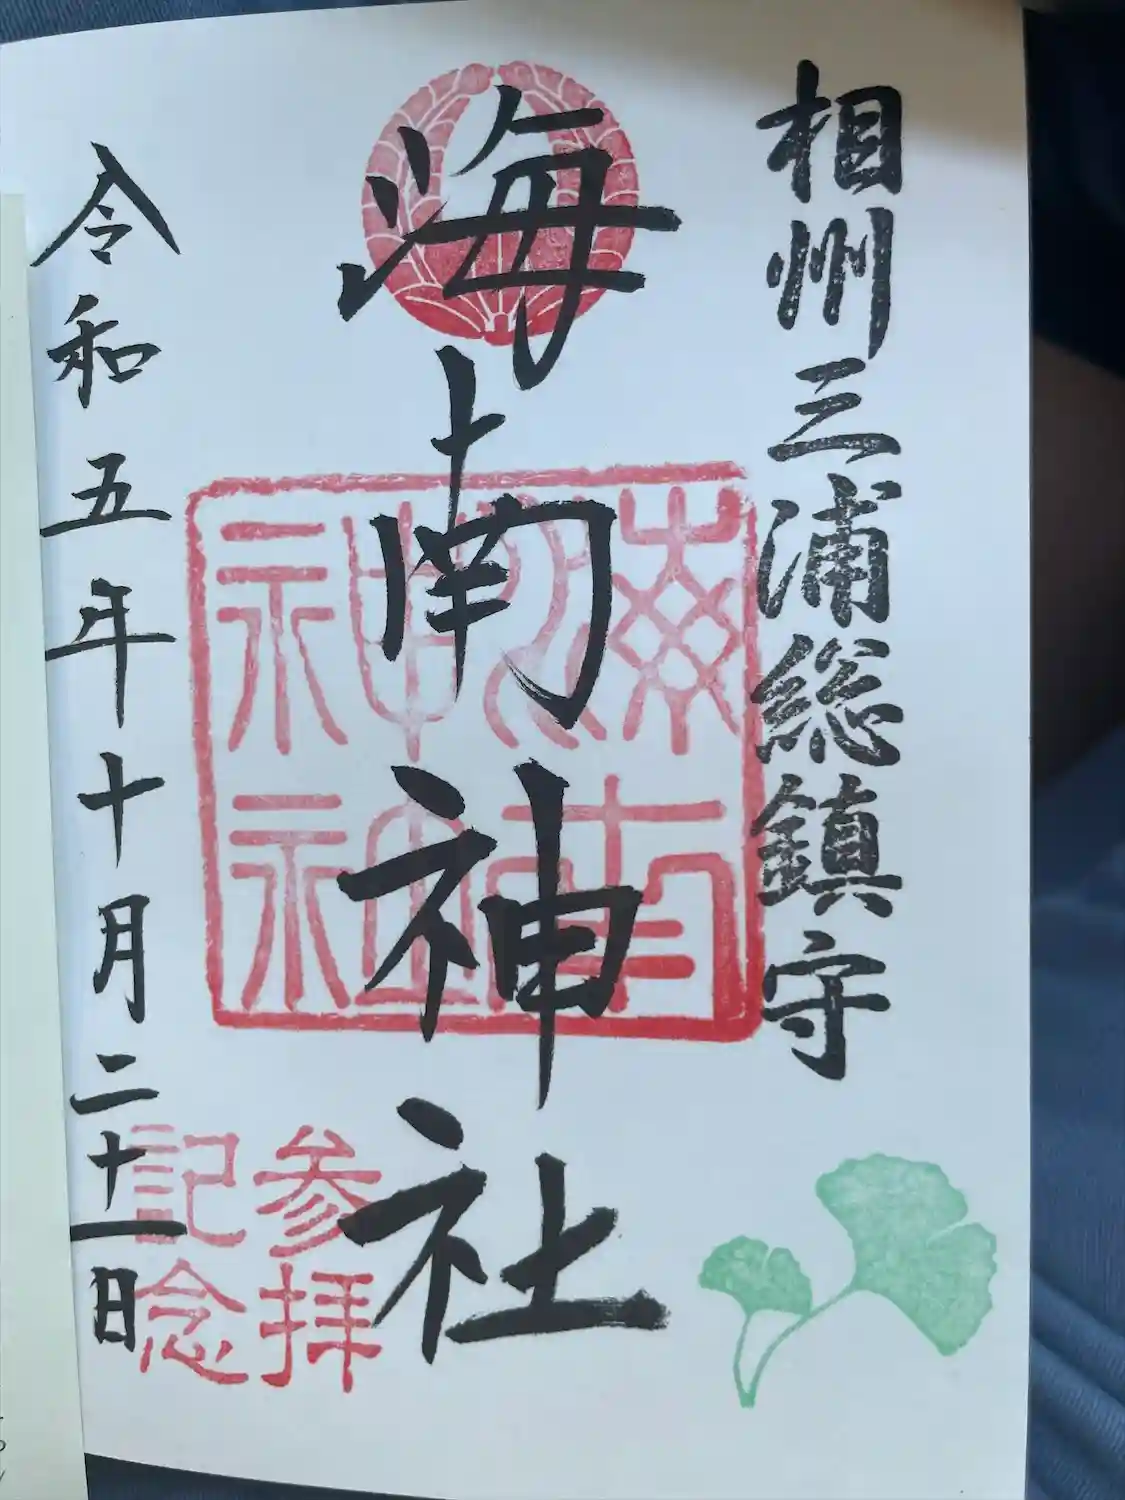 相州三浦総鎮守
海南神社
海南神社
参拝記念
令和五年十月二十一日